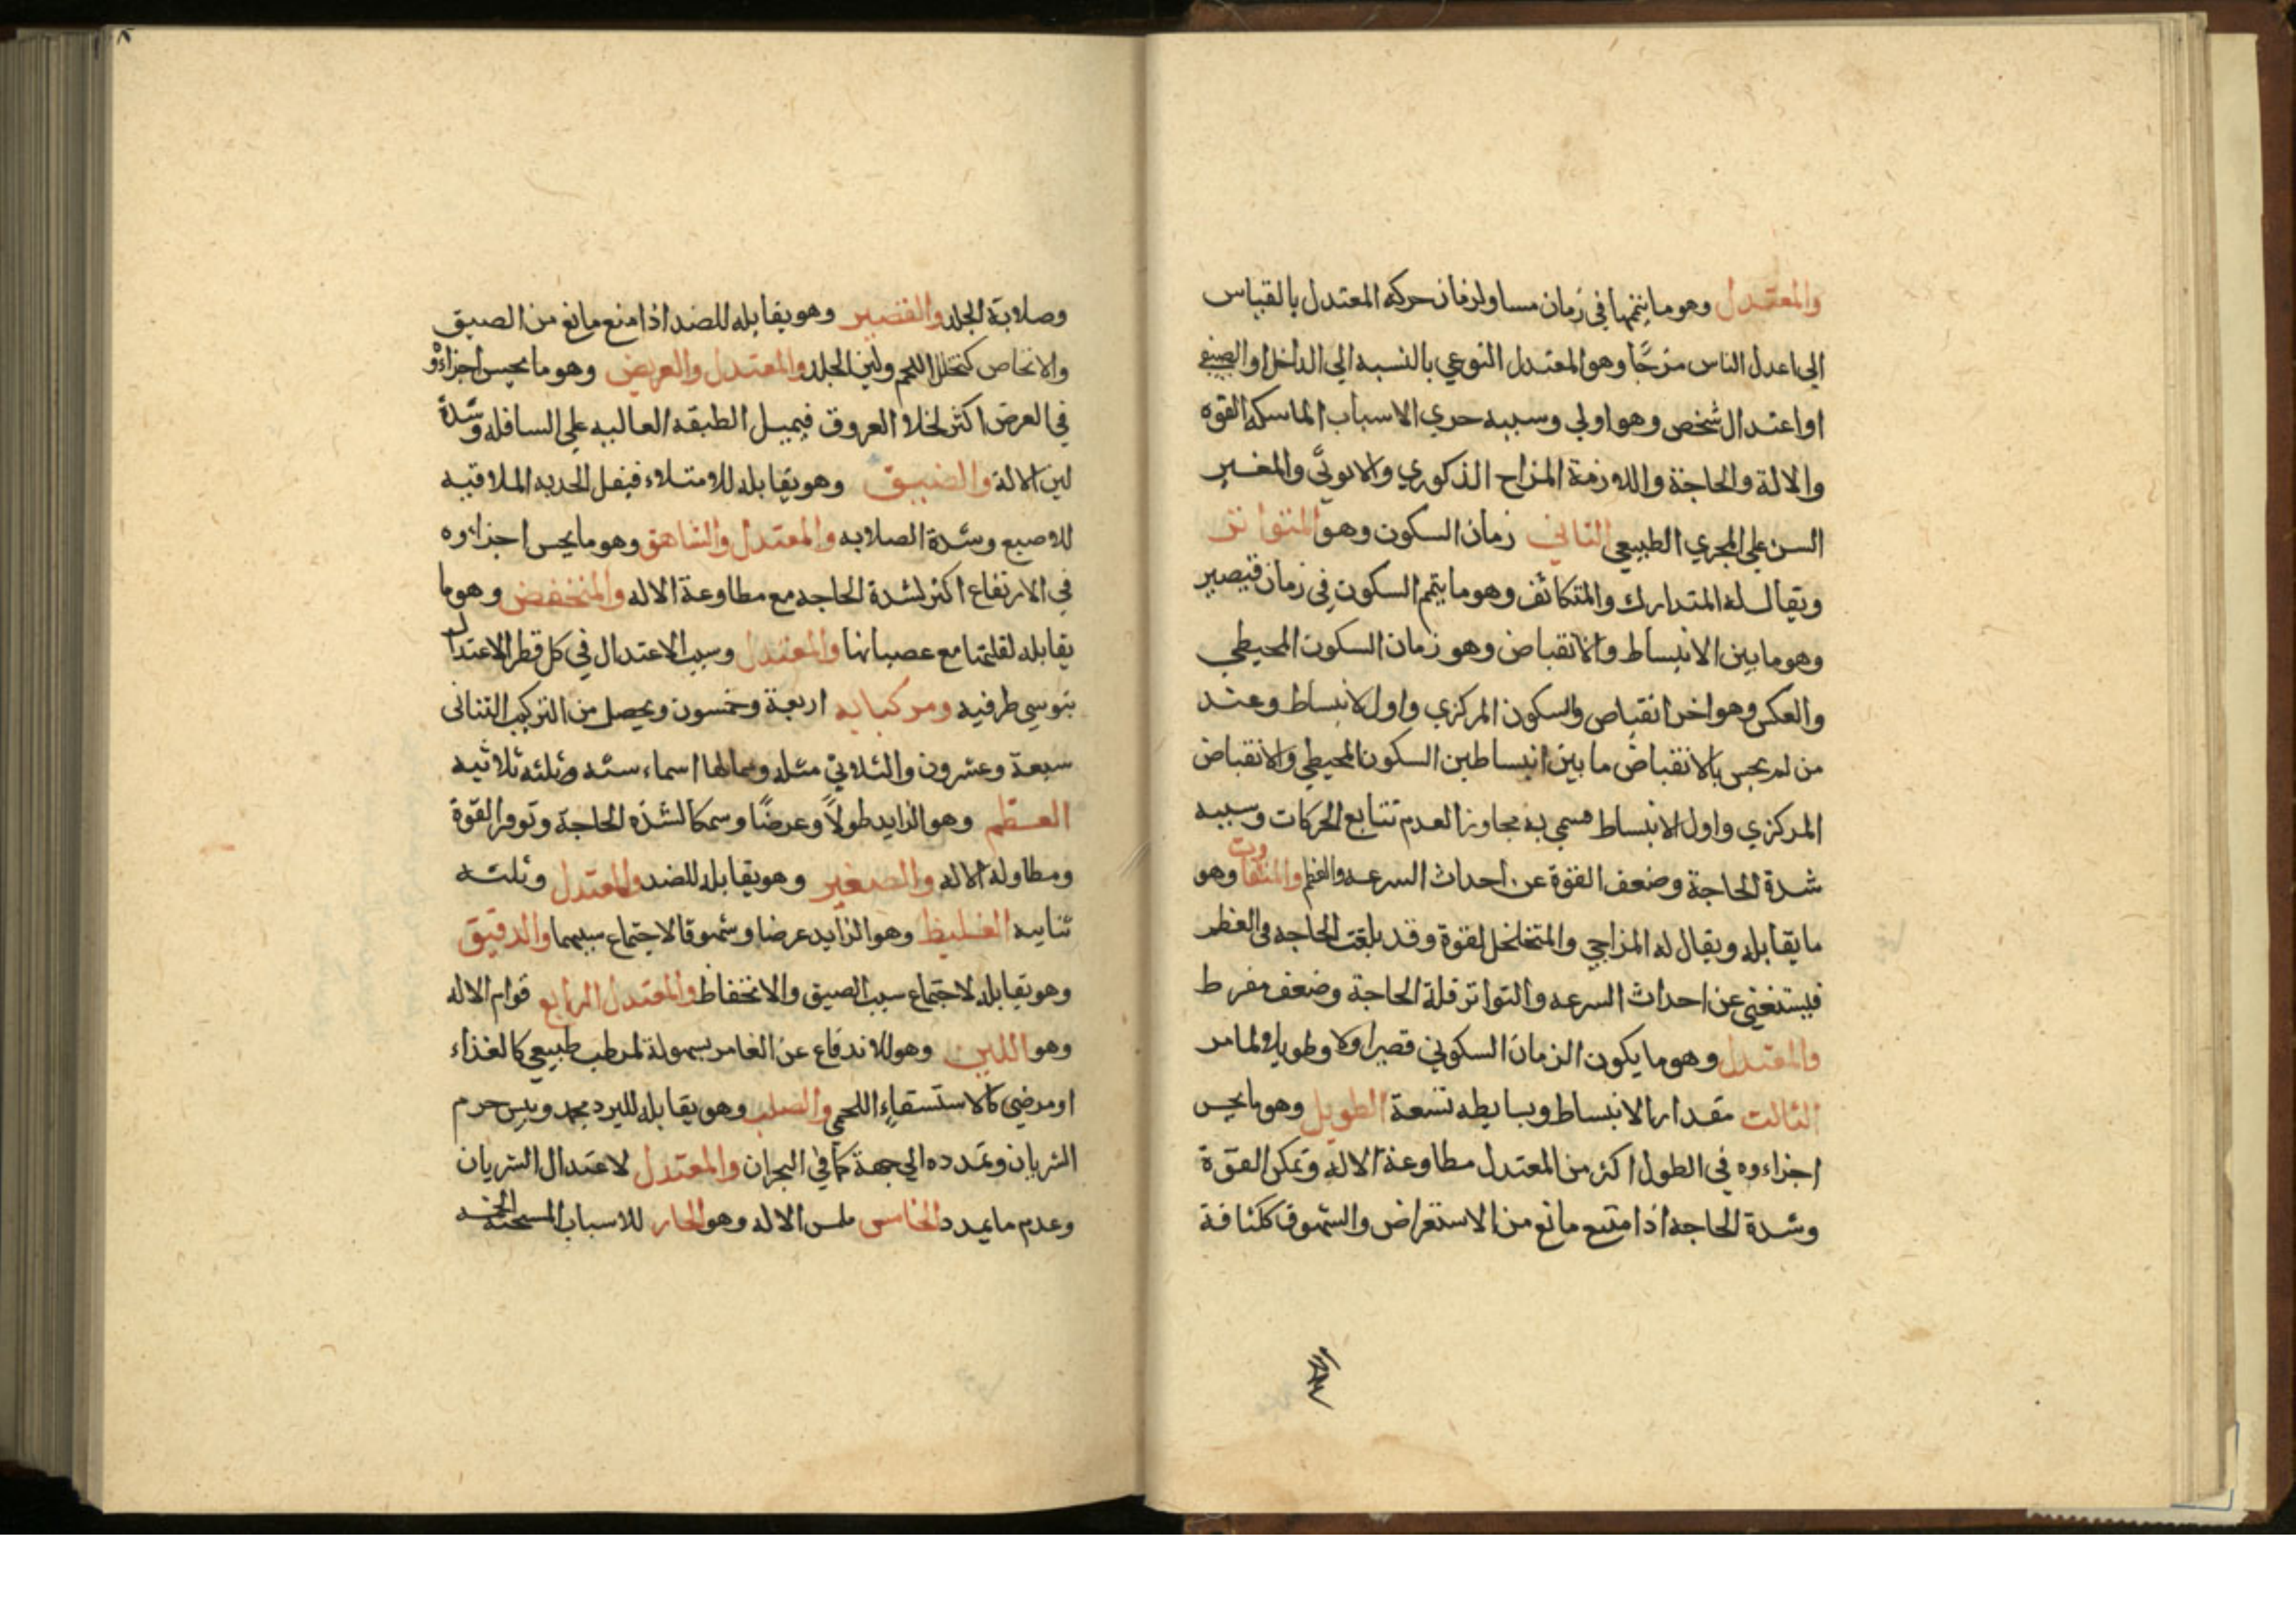 والمعتدل وهو ما يتمها في زمان مساو لزمان حركه المعتدل بالقياس
الى اعدل الناس مزجًا وهو المعتدل النوعي بالنسبه الي الداخل او الصنفي
او اعتدال شخص وهو اولي وسببه حري الاسباب الماسكه القوه
والالة والحاجة واللازمة المزاح الذكوري والانوثي والمغير
السن علي المجري الطبيعي الثاني زمان السكون وهو المتواتر
ويقال له المتدارك والمتكاثف وهو ما يتمم السكون في زمان قيصير
وهو ما بين الانبساط والانقباض وهو زمان السكون المحيطي
والعكس وهو اخر انقباض والسكون المركزي واول لانبساط وعند
من لم يحس بالانقباض ما بين انبساطين السكون المحيطي والانقباض
المركزي واول الانبساط فسمي به مجاوز العدم تتابع الحركات وسببه
شدة الحاجة وضعف القوة عن احداث السرعه والعظم والمتفاوت وهو
ما يقابله ويقال له المزاجي والمتخلخل لقوة وقد بلغت الحاجه في العظم
فيستغني عن احداث السرعه والتواتر قلة الحاجة وضعف مفرط
والمعتدل وهو ما يكون الزمان السكوني قصيرا ولا طويلا لما مر
الثالث مقدار الانبساط وبسايطه تسعة الطويل وهو ما يحس
اجزاءوه في الطول اكثر من المعتدل مطاوعة الاله وتمكن القوة
وشدة الحاجه اذا متبع مانع من الاستعراض والشهوق ككثافة
وصلابة الجلد والقصير وهو يقابله للضد اذا منع مانع من الصيق
والانخاص كتخلل اللحم ولين الجلد والمعتدل والعريض وهو ما يحس اجزاءؤ
في العرض اكثر لخلا العروق فيميل الطبقه العاليه علي السافله وشدة
لين الالة والضيق وهو يقابله للامتلاء فيفل الحديه الملاقيه
للاصبع وشدة الصلابه والمعتدل والشاهق وهو ما يحس اجزاوه
في الارتفاع اكثر لشدة الحاجه مع مطاوعة الاله والمنخفض وهو ما
يقابله لقلتها مع عصيانها والمعتدل وسبب الاعتدال في كل قطر الاعتدال
بتوسي طرفيه ومركباته اربعة وخمسون ويحصل من التركيب الثنائي
سبعة وعشرون والثلاثي مثله ومالها اسماء سته وثلثه ثلاثيه
العظم وهو الزايد طولاً وعرضًا وسمكا لشذه الحاجة وتوفر القوة
ومطاوله الاله والصغير وهو يقابله للضد والمعتدل وثلثه
ثنايه الغليظ وهو الزايد عرضا وشهوقا لاجتماع سببهما والدقيق
وهو يقابله لاجتماع سبب الصيق والانخفاظ والمعتدل الرابع قوام الاله
وهو اللين وهو للاندفاع عن الغامر بسهولة لمرطب طبيعي كالغذاء
او مرضي كالاستسقاء اللحمي والصلب وهو يقابله للبرد مجمد ويبس حرم
الشربان وتمدده الي جهة كما في البحران والمعتدل لاعتدال الشريان
وعدم ما يمدد الخامس ملس الاله وهو الحار للاسباب المسخنة